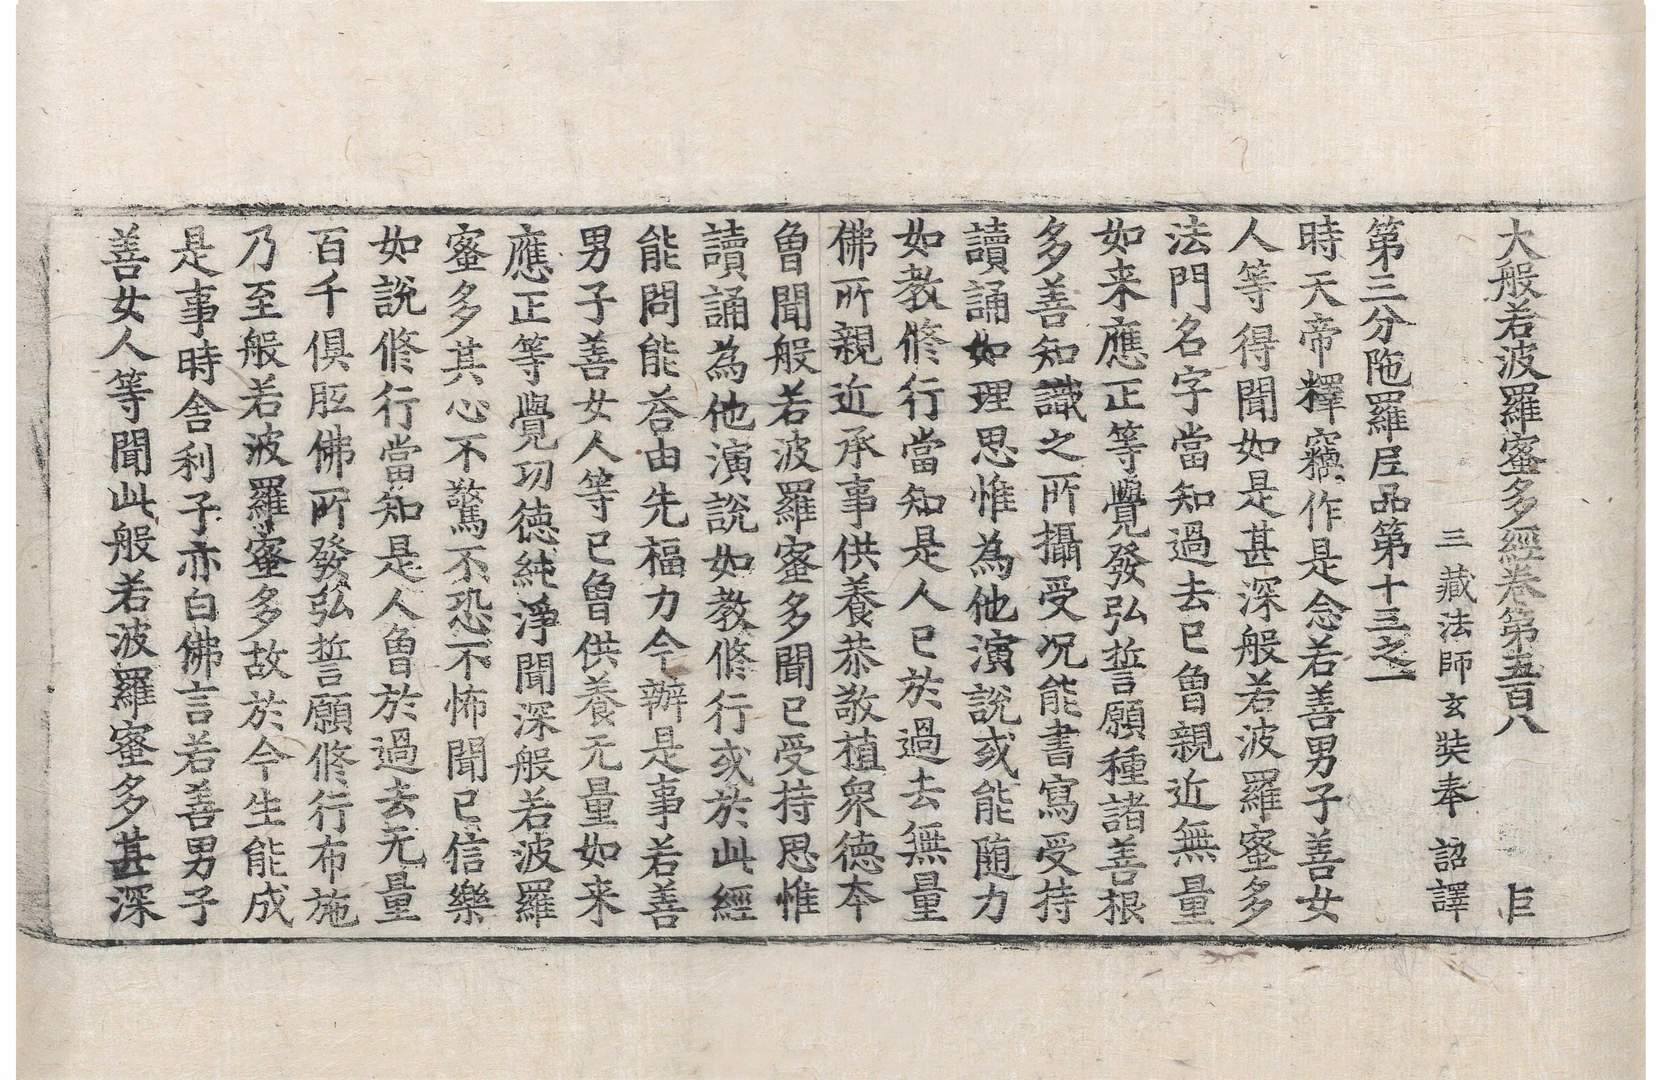 大般若波羅蜜多經卷第五百八 巨
三藏法師玄奘奉 詔譯
第三分陁羅尼品第十三之一
時天帝釋竊作是念若善男子善女
人等得聞如是甚深般若波羅蜜多
法門名字當知過去已曾親近無量
如来應正等覺發弘誓願種諸善根
多善知識之所攝受况能書寫受持
讀誦如理思惟為他演說或能随力
如教修行當知是人已於過去無量
佛所親近承事供養恭敬植衆德本
曾聞般若波羅蜜多聞已受持思惟
讀誦為他演說如教修行或於此經
能問能荅由先福力今辦是事若善
男子善女人等已曾供養无量如来
應正等覺功德純淨聞深般若波羅
蜜多其心不驚不恐不怖聞已信樂
如說修行當知是人曾於過去无量
百千俱胝佛所發弘誓願修行布施
乃至般若波羅蜜多故於今生能成
是事時舍利子亦白佛言若善男子
善女人等聞此般若波羅蜜多甚深